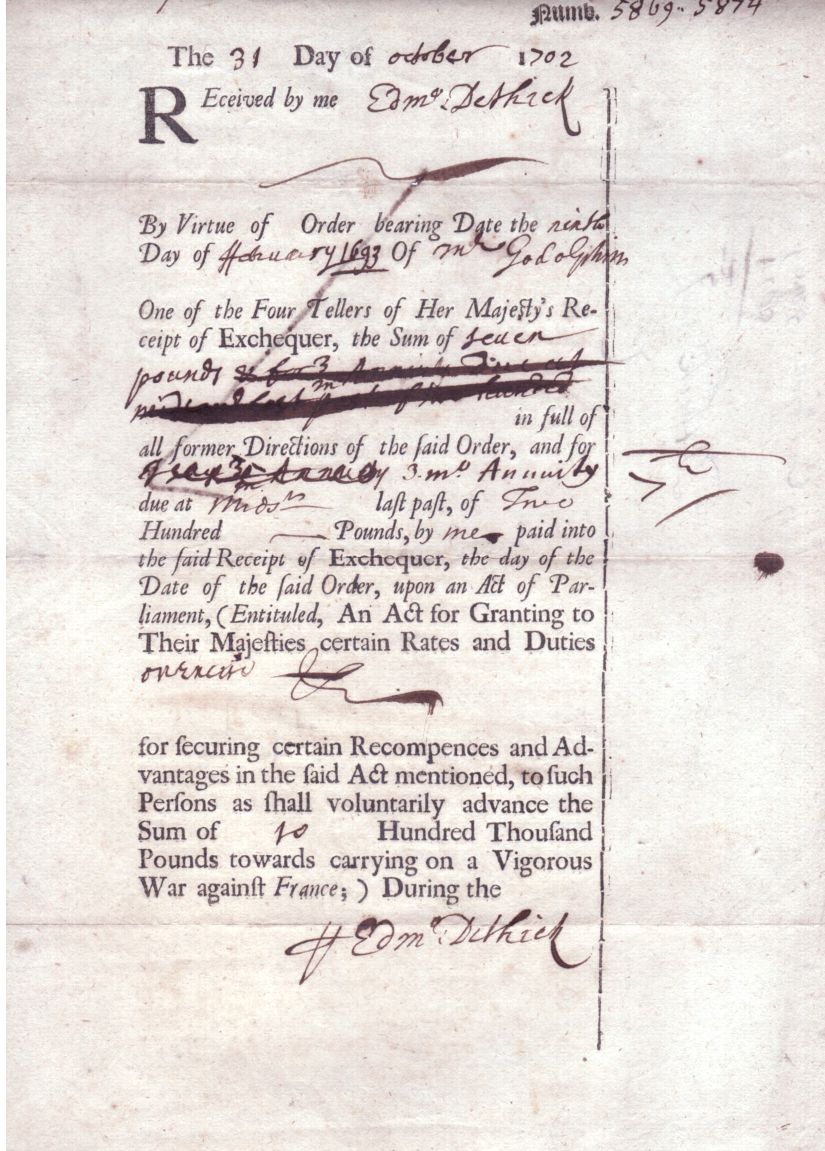 Numb. 5869-5874
The 31 Day of october 1702
REceived by me Edmd: Dethick
By Virtue of Order bearing Date the ninth
Day of ffebruary 1693 Of mr Godolphin
One of the Four Tellers of Her Majeſty's Re-
ceipt of Exchequer, the Sum of seven
pounds
in full of
all former Directions of the ſaid Order, and for
3 mo Annuity
due at laſt paſt, of Two
Hundred Pounds, by me paid into
the ſaid Receipt of Exchequer, the day of the
Date of the ſaid Order, upon an Act of Par-
liament, (Entituled, An Act for Granting to
Their Majeſties certain Rates and Duties
for ſecuring certain Recompences and Ad-
vantages in the ſaid Act mentioned, to ſuch
Perſons as ſhall voluntarily advance the
Sum of 10 Hundred Thouſand
Pounds towards carrying on a Vigorous
War againſt France; ) During the
Edmd: Dethick